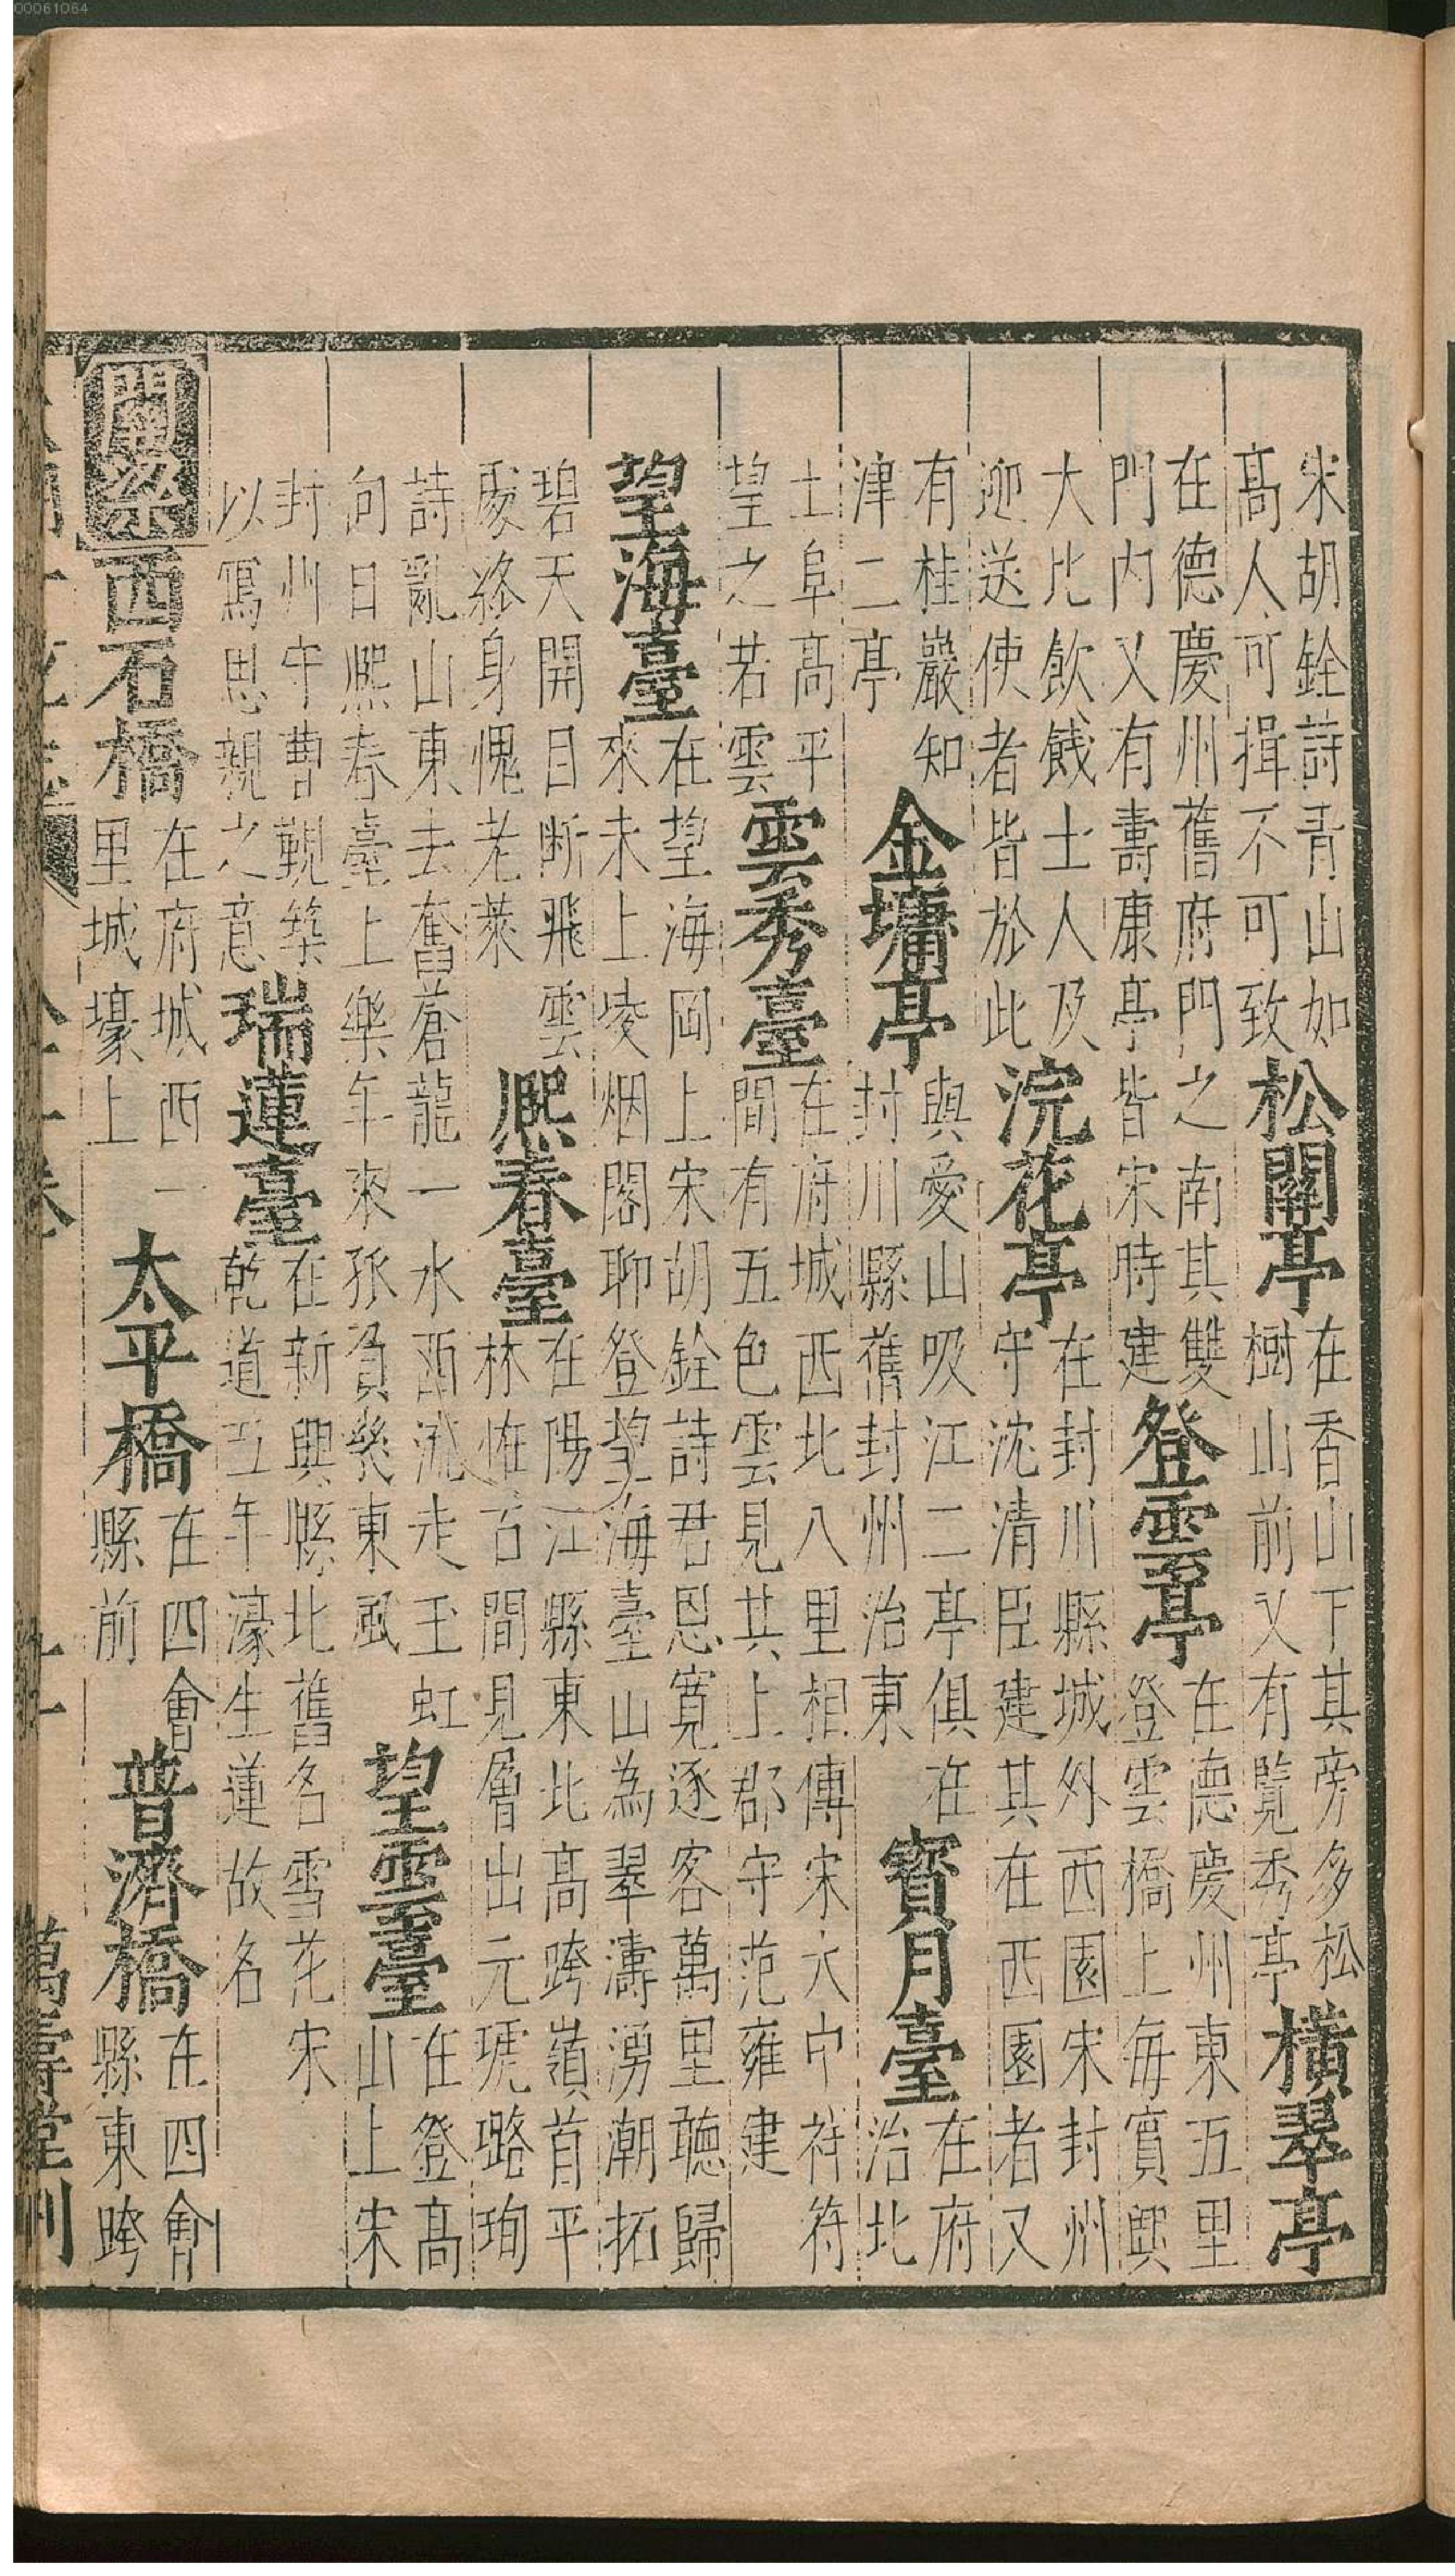 00061064
宋胡銓詩青山如
髙人可揖不可致
松關亭
在香山下其旁多松
樹山前又有覽秀亭
橫翠亭
在德慶州舊府門之南其雙
門内又有壽康亭皆宋時建
登雲亭
在德慶州東五里
登雲橋上每賓興
大比飲餞士人及
迎送使者皆於此
浣花亭
在封川縣城外西園宋封州
守沈清臣建其在西園者又
有桂巖知
津二亭
金墉亭
與愛山吸江二亭俱在
封川縣舊封州治東
寳月臺
在府
治北
土阜髙平
望之若雲
雲秀臺
在府城西北八里相傳宋大中祥符
間有五色雲見其上郡守范雍建
望海臺
在望海岡上宋胡銓詩君恩寛逐客萬里聽歸
來未上凌烟閣聊登望海臺山為翠濤湧潮拓
碧天開目断飛雲
處終身愧老萊
熈春臺
在陽江縣東北髙跨嶺首平
林恠石間見層出元琥璐珣
詩亂山東去奮蒼龍一水西流走玉虹
向日熈春臺上樂年來孤負幾東風
望雲臺
在登髙
山上宋
封州守曹覲築
以寫思親之意
瑞蓮臺
在新興縣北舊名雪花宋
乾道五年濠生蓮故名
關梁
西石橋
在府城西一
里城壕上
太平橋
在四會
縣前
普濟橋
在四會
縣東跨
萬壽堂刊